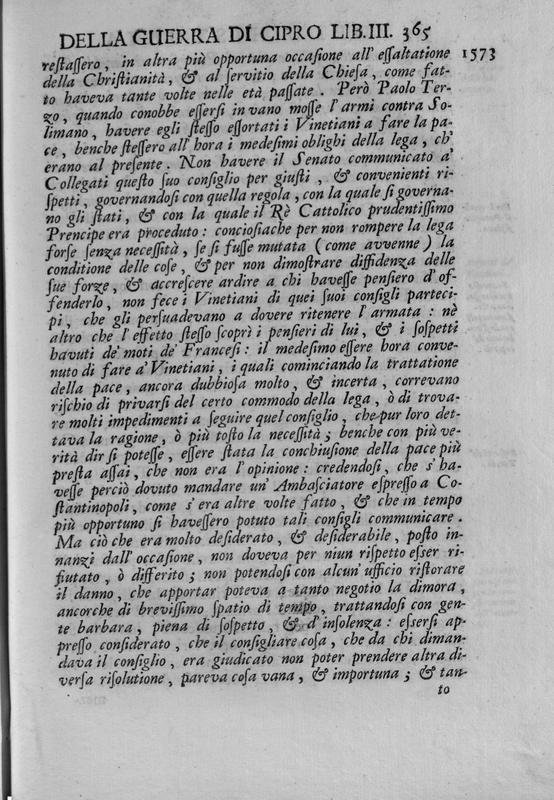 DELLA GUERRA DI CIPRO LIB.III. 365
1573
reſtaſſero, in altra più opportuna occaſione all' eſſaltatione
della Chriſtianità, & al ſervitio della Chieſa, come fat-
to haveva tante volte nelle età paſſate. Però Paolo Ter-
zo, quando conobbe eſſerſi invano moſſe l'armi contra So-
limano, havere egli ſteſſo eſſortati i Vinetiani a fare la pa-
ce, benche ſteſſero all' hora i medeſimi oblighi della lega, ch'
erano al preſente. Non havere il Senato communicato a'
Collegati queſto ſuo conſiglio per giuſti, & convenienti ri-
ſpetti, governandoſi con quella regola, con la quale ſi governa-
no gli ſtati, & con la quale il Rè Cattolico prudentiſſimo
Prencipe era proceduto: concioſiache per non rompere la lega
forſe ſenza neceſſità, ſe ſi fuſſe mutata (come avvenne) la
conditione delle coſe, & per non dimoſtrare diffidenza delle
ſue forze, & accreſcere ardire a chi haveſſe penſiero d'of-
fenderlo, non fece i Vinetiani di quei ſuoi conſigli parteci-
pi, che gli perſuadevano a dovere ritenere l'armata: nè
altro che l'effetto ſteſſo ſcoprì i penſieri di lui, & i ſoſpetti
havuti de' moti de' Franceſi: il medeſimo eſſere hora conve-
nuto di fare a' Vinetiani, i quali cominciando la trattatione
della pace, ancora dubbioſa molto, & incerta, correvano
riſchio di privarſi del certo commodo della lega, ò di trova-
re molti impedimenti a ſeguire quel conſiglio, che pur loro det-
tava la ragione, ò più toſto la neceſſità; benche con più ve-
rità dir ſi poteſſe, eſſere ſtata la concluſione della pace più
preſta aſſai, che non era l'opinione: credendoſi, che s'ha-
veſſe perciò dovuto mandare un' Ambaſciatore eſpreſſo a Co-
ſtantinopoli, come s'era altre volte fatto, & che in tempo
più opportuno ſi haveſſero potuto tali conſigli communicare.
Ma ciò che era molto deſiderato, & deſiderabile, poſto in-
nanzi dall' occaſione, non doveva per niun riſpetto eſſer ri-
fiutato, ò differito; non potendoſi con alcun' ufficio riſtorare
il danno, che apportar poteva a tanto negotio la dimora,
ancorche di breviſſimo ſpatio di tempo, trattandoſi con gen-
te barbara, piena di ſoſpetto, & d'inſolenza: eſſerſi ap-
preſſo conſiderato, che il conſigliare coſa, che da chi diman-
dava il conſiglio, era giudicato non poter prendere altra di-
verſa riſolutione, pareva coſa vana, & importuna; & tan-
to